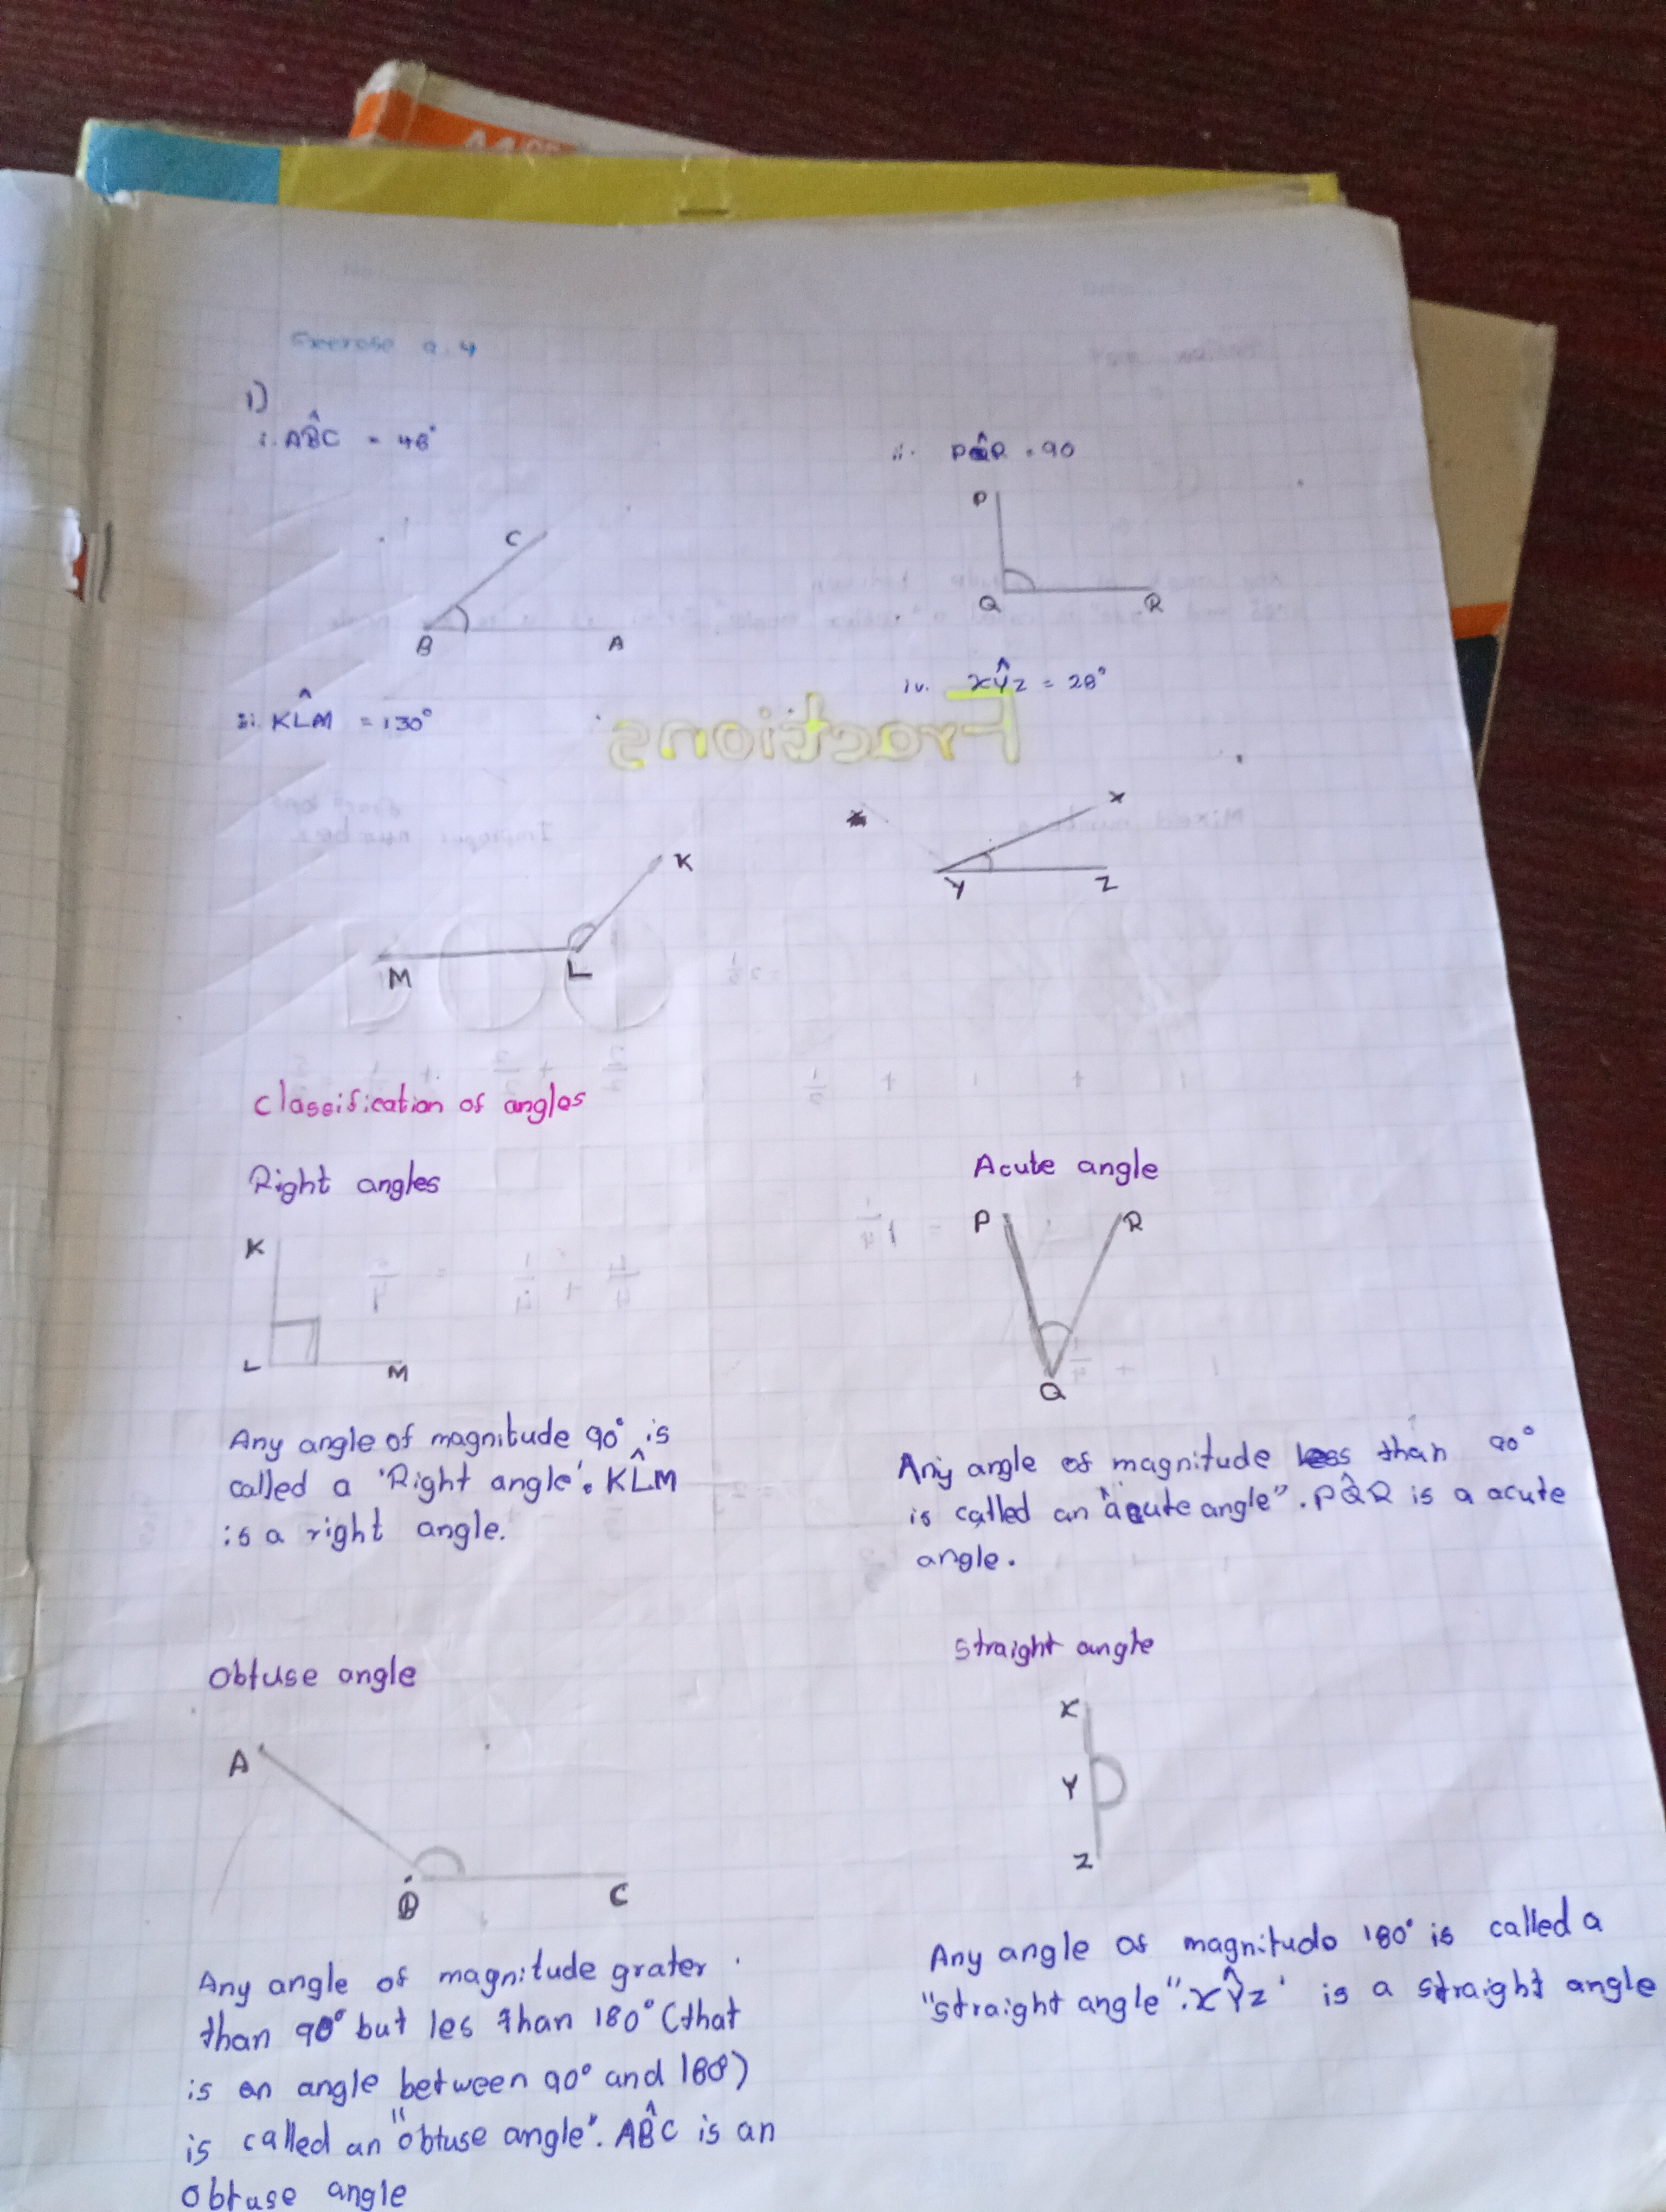 Exercise 9.4
1)
i. AB̂C = 48°
ii. PQ̂R = 90
C
B A
P
Q R
iii. KL̂M = 130°
iv. XŶZ = 28°
K
M L
X
Y Z
Classification of angles
Right angles
K
L M
Any angle of magnitude 90° is
called a 'Right angle'. KL̂M
is a right angle.
Acute angle
P R
Q
Any angle of magnitude less than 90°
is called an "acute angle". PQ̂R is a acute
angle.
Obtuse angle
A
B C
Any angle of magnitude grater
than 90° but les than 180° (that
is an angle between 90° and 180)
is called an "obtuse angle". AB̂C is an
obtuse angle
Straight angle
X
Y
Z
Any angle of magnitude 180° is called a
"straight angle". XŶZ is a straight angle